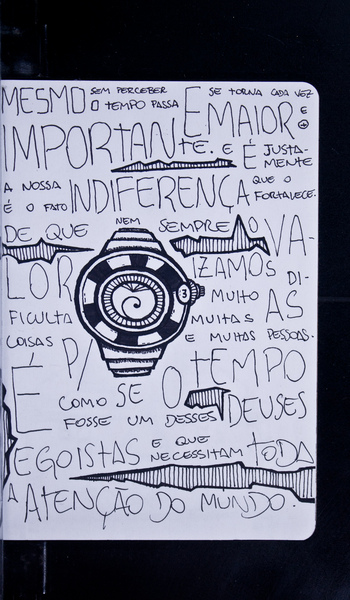 MESMO SEM PERCEBER O TEMPO PASSA E SE TORNA CADA VEZ MAIOR e +
IMPORTANTE. E É JUSTA-
MENTE
A NOSSA INDIFERENÇA QUE O FORTALECE.
É O FATO
DE QUE NEM SEMPRE O VA-
LOR IZAMOS DI-
FICULTA MUITO AS
COISAS P/ MUITAS E MUITAS PESSOAS.
É COMO SE O TEMPO
FOSSE UM DESSES DEUSES
EGOISTAS E QUE NECESSITAM TODA
A ATENÇÃO DO MUNDO.
3